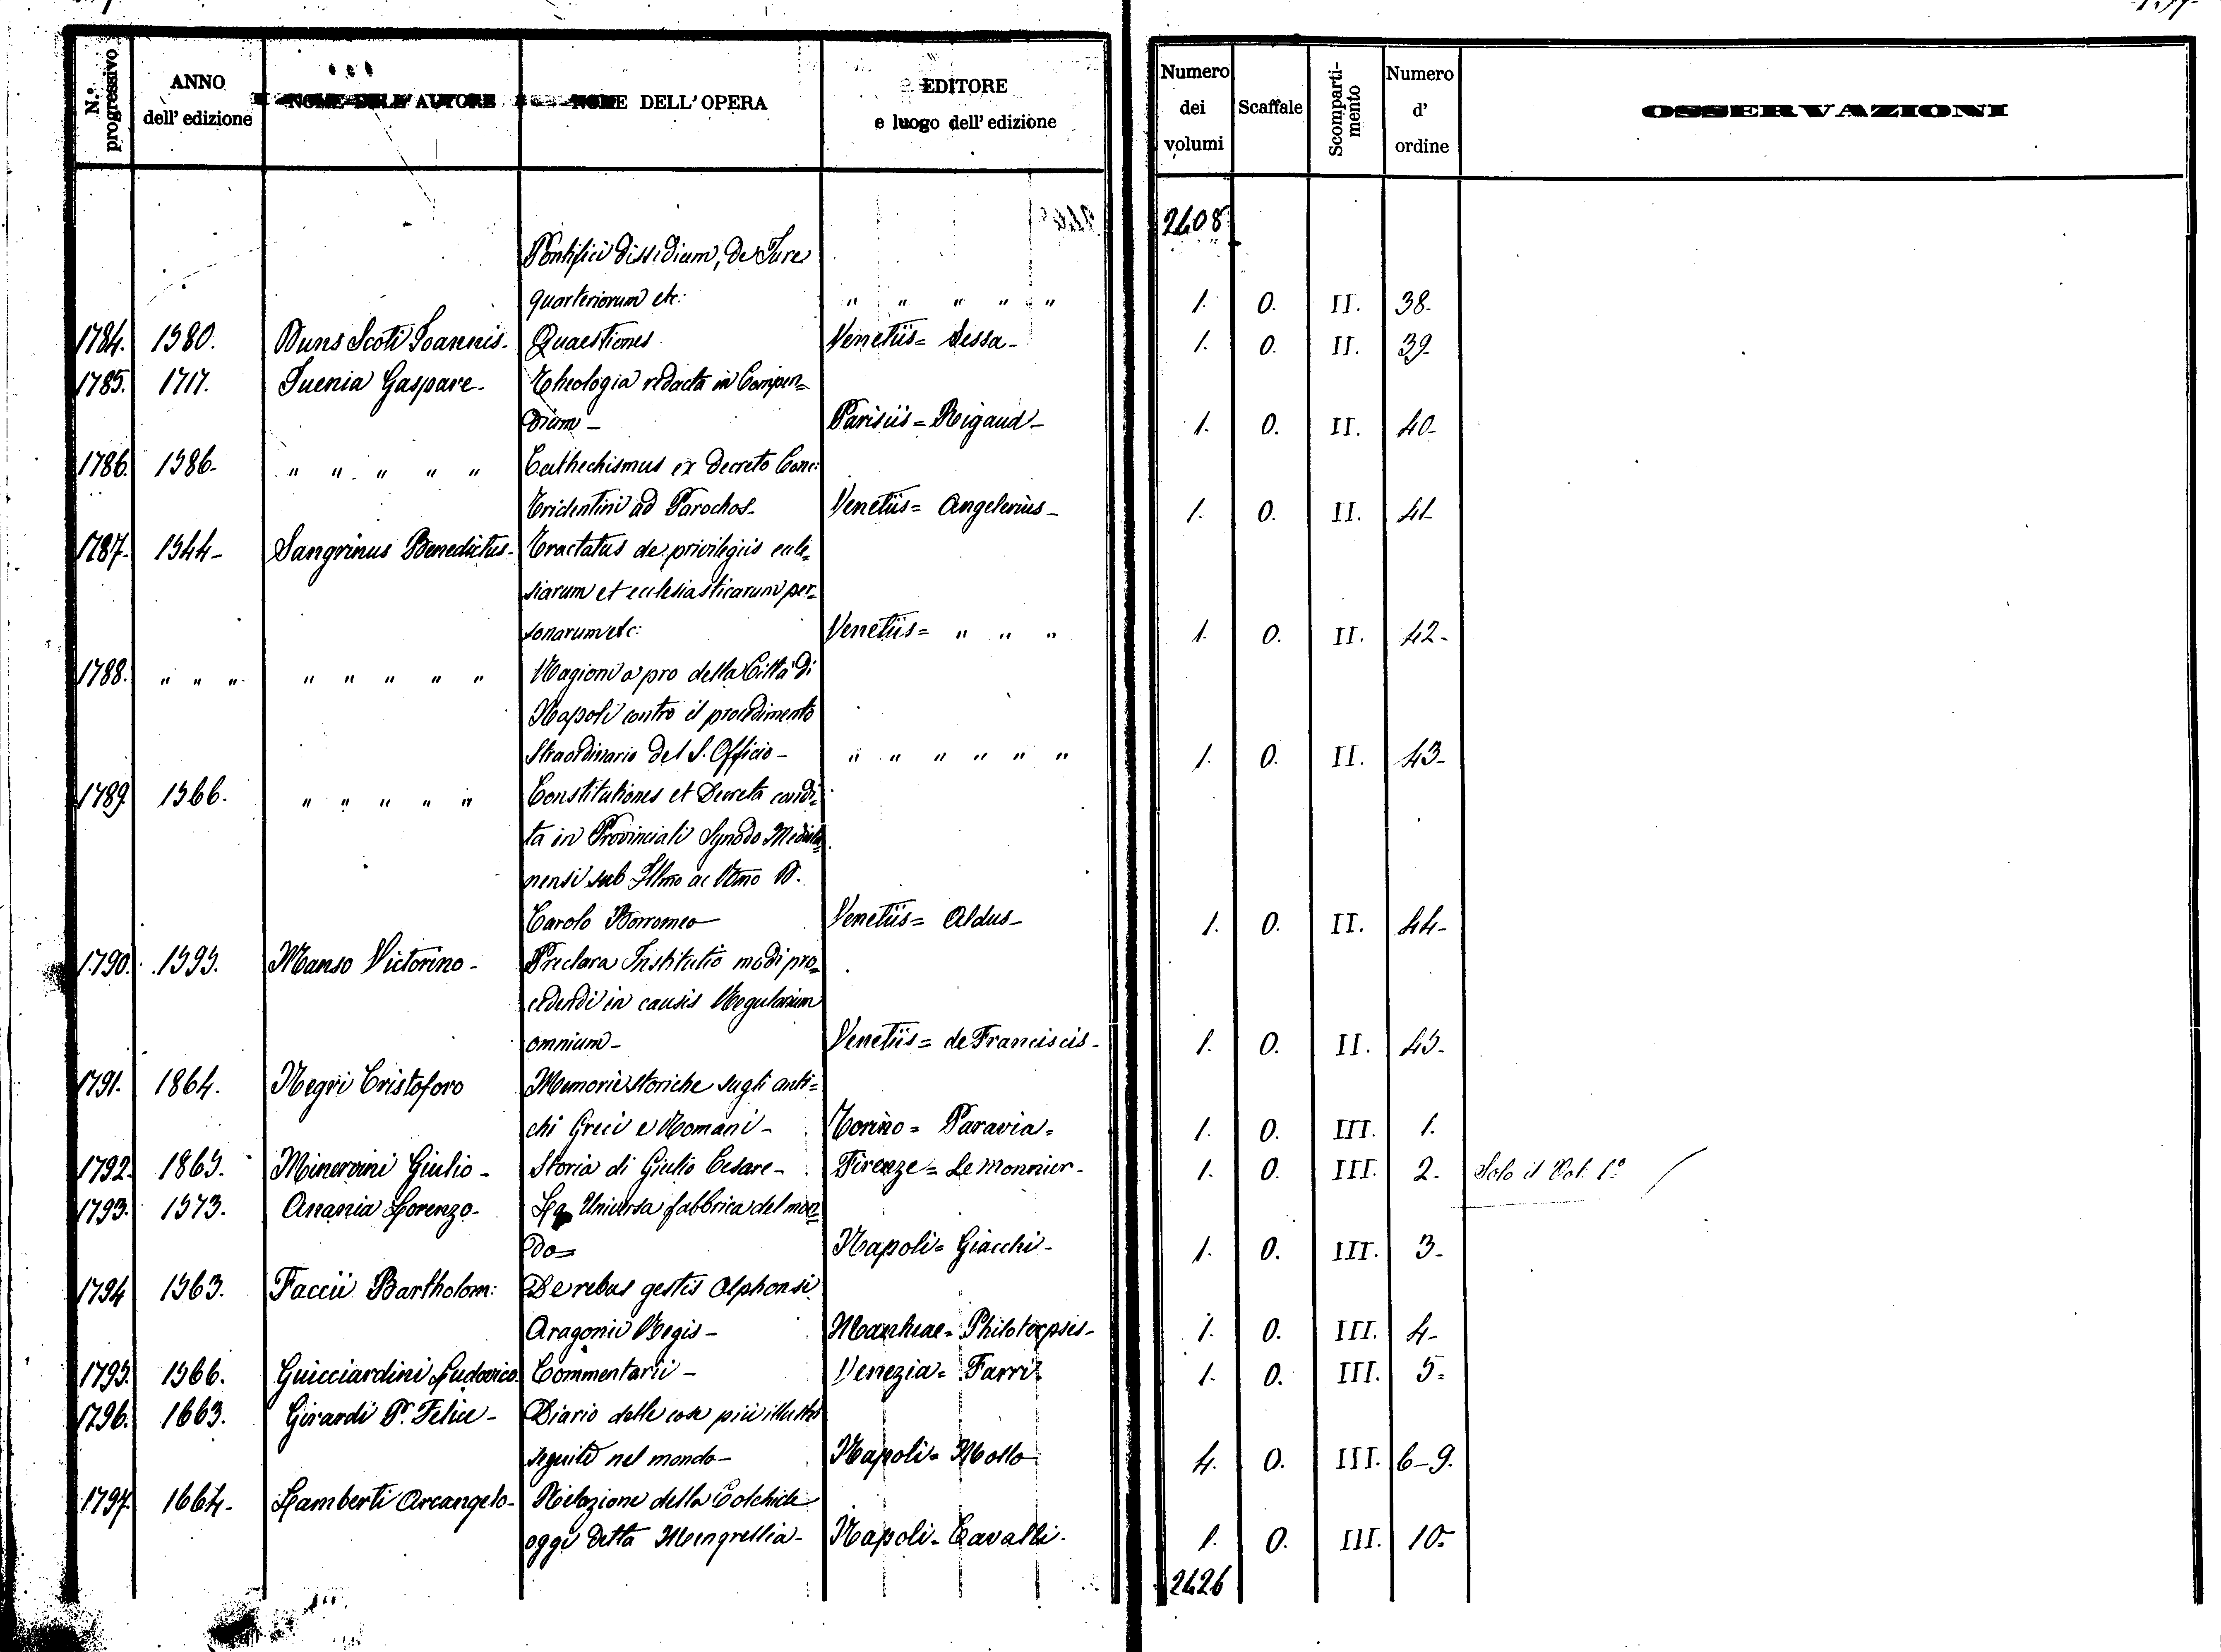 N.º progressivo | ANNO dell' edizione | NOME DELL' AUTORE | NOME DELL' OPERA | EDITORE e luogo dell' edizione | Numero dei volumi | Scaffale | Scompartimento | Numero d' ordine | OSSERVAZIONI
2408
Pontifici dissidium, de Jure
quarteriorum etc: | " " " " " | 1. | O. | II. | 38-
1784. | 1580. | Duns Scoti Joannis- | Quaestiones | Venetiis= Sessa- | 1. | O. | II. | 39-
1785. | 1717. | Juenia Gaspare- | Theologia redacta in Compen=
dium- | Parisiis= Rigaud- | 1. | O. | II. | 40-
1786. | 1586- | " " " " " | Cathechismus ex decreto Conc:
Tridentini ad Parochos- | Venetiis= Angelerius- | 1. | O. | II. | 41-
1787. | 1544- | Sangrinus Benedictus- | Tractatus de privilegiis eccle=
siarum et ecclesiasticarum per=
sonarum etc: | Venetiis= " " " | 1. | O. | II. | 42-
1788. | " " " | " " " " " | Ragioni a pro della Città di
Napoli contro il procedimento
straordinario del S. Officio- | " " " " " " | 1. | O. | II. | 43-
1789. | 1566. | " " " " " | Constitutiones et Decreta condi=
ta in Provinciali Synodo Mediola=
nensi sub Illmo ac Rmo D.
Carolo Borromeo | Venetiis= Aldus- | 1. | O. | II. | 44-
1790. | 1595. | Manso Victorino- | Preclara Institutio modi pro=
cedendi in causis Regularium
omnium- | Venetiis= de Franciscis- | 1. | O. | II. | 45-
1791. | 1864. | Negri Cristoforo | Memorie storiche sugli anti=
chi Greci e Romani- | Torino= Paravia= | 1. | O. | III. | 1.
1792. | 1865. | Minervini Giulio- | Storia di Giulio Cesare- | Firenze= Le Monnier- | 1. | O. | III. | 2- | Solo il Vol. 1º
1793. | 1573. | Anania Lorenzo- | La Universa fabbrica del mon=
do= | Napoli= Giacchi- | 1. | O. | III. | 3-
1794 | 1563. | Faccii Bartholom: | De rebus gestis Alphonsi
Aragonii Regis- | 1. | O. | III. | 4-
1795. | 1566. | Guicciardini Ludovico | Commentarii- | Venezia= Farri= | 1. | O. | III. | 5=
1796. | 1663. | Girardi P. Felice- | Diario delle cose più illustri
seguite nel mondo- | Napoli= Mollo | 4. | O. | III. | 6-9.
1797. | 1664- | Lamberti Arcangelo- | Relazione della Colchide
oggi detta Mengrellia- | Napoli= Cavalli. | 1. | O. | III. | 10=
2426